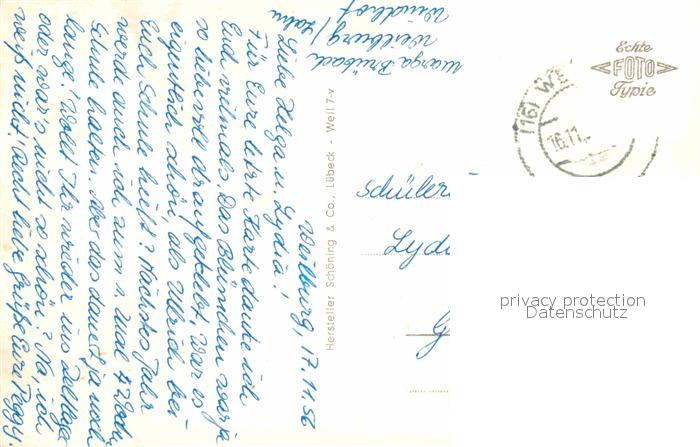 Marga Brübach
Weilburg/Lahn
Windhof
Weilburg, 17.11.56
Liebe Helga u. Lydia!
Für Eure letzte Karte danke ich
Euch vielmals. Das Blümchen war ja
so liebevoll draufgeklebt. War es
eigentlich schön, als Ullrich bei
Euch Schule hielt? Nächstes Jahr
werde auch ich zum 1. Mal 4 Woch.
Schule halten. Aber das dauert ja noch
lange! Wollt Ihr wieder ins Zeltlager
oder war's nicht so schön? Na, ich
weiß nicht! Recht liebe Grüße Eure Peggy
Hersteller Schöning & Co., Lübeck - Weil 7-v
Echte
FOTO
Typie
(16) WE
16.11.
Schüler
Lyd
G
privacy protection
Datenschutz